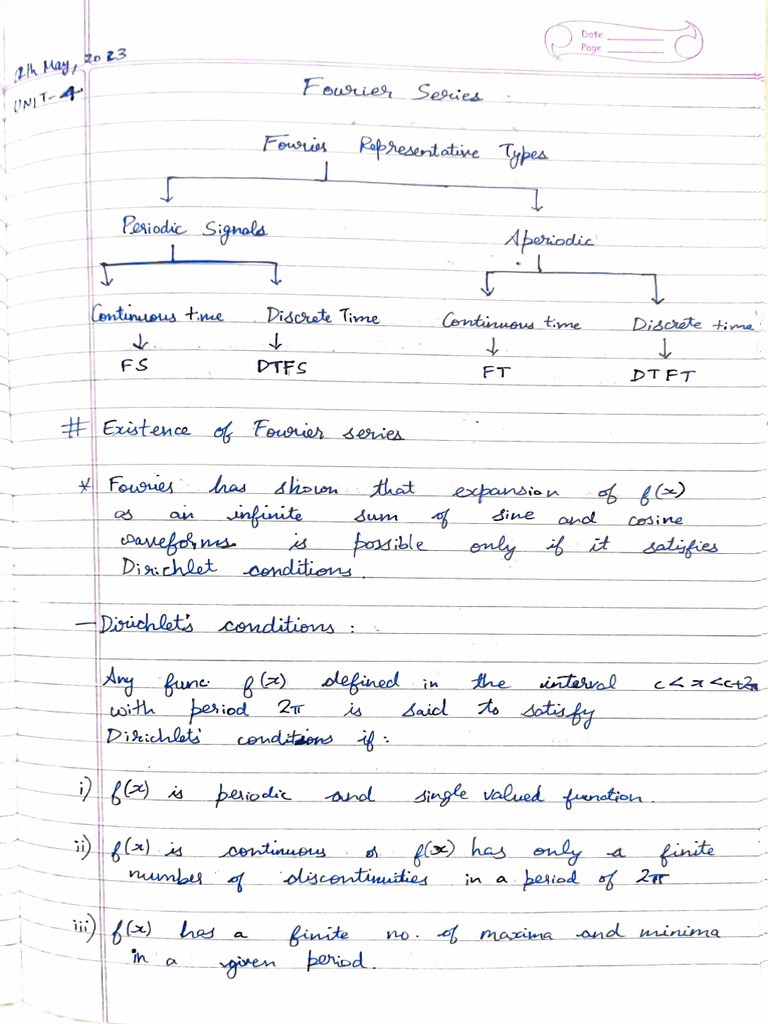 Date
Page
12th May, 2023
UNIT-4
Fourier Series
Fourier Representative Types
Periodic Signals Aperiodic
Continuous time Discrete Time Continuous time Discrete time
FS DTFS FT DTFT
# Existence of Fourier series
* Fourier has shown that expansion of f(x)
as an infinite sum of sine and cosine
waveforms is possible only if it satisfies
Dirichlet conditions.
— Dirichlet's conditions :
Any func. f(x) defined in the interval c < x < c+2π
with period 2π is said to satisfy
Dirichlet's conditions if :
i) f(x) is periodic and single valued function.
ii) f(x) is continuous or f(x) has only a finite
number of discontinuities in a period of 2π
iii) f(x) has a finite no. of maxima and minima
in a given period.